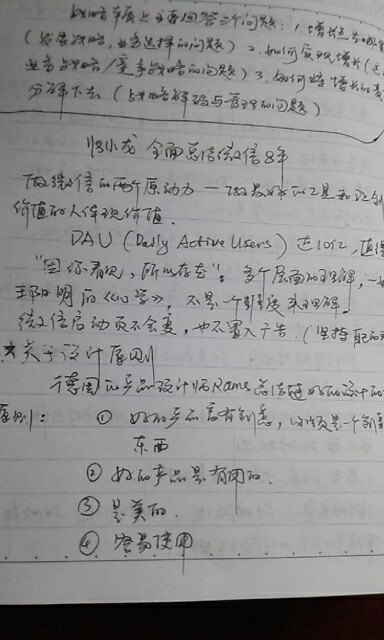 战略本质上主要回答三个问题：1. 增长点在哪里
（发展战略，业务选择的问题）2. 如何实现增长（
业务战略/竞争战略的问题）3. 如何将增长的
分解下去（战略解码与管理的问题）
张小龙 全面总结微信8年
做微信的两个原动力 — 做最好的工具和让创
价值的人体现价值.
DAU (Daily Active Users) 过10亿, 值得
"因你看见，所以存在"。多个层面的理解，一
王阳明的《心学》，不是一个维度来理解。
微信启动页不会变，也不置入广告.（坚持
关于设计原则
德国的产品设计师Rams总结过好的设计的
原则： ① 好的产品富有创意，必须是一个创新
东西
② 好的产品是有用的.
③ 是美的.
④ 容易使用